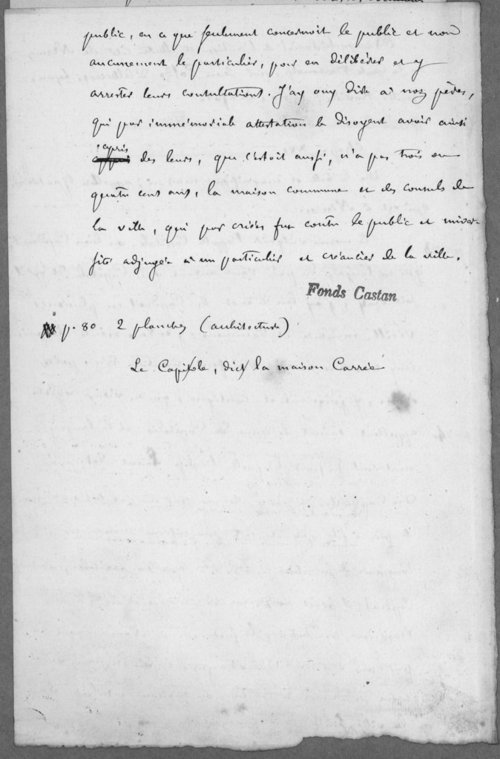 public, en ce que seulement concernoit le public et non
aucunement le particulier, pour en délibérer et y
arrester leurs consultations. J'ay ouy dire à noz pères,
qui par immémoriale attestation le disoyent avoir ainsi
apris des leurs, que c'estoit aussi, n'a pas trois ou
quatre cens ans, la maison commune et des consuls de
la ville, qui par criées fut contre le public et univer-
sité adjugée à un particulier et créancier de la ville.
Fonds Castan
p. 80 2 planches (architecture)
Le Capitole, dict la maison Carrée